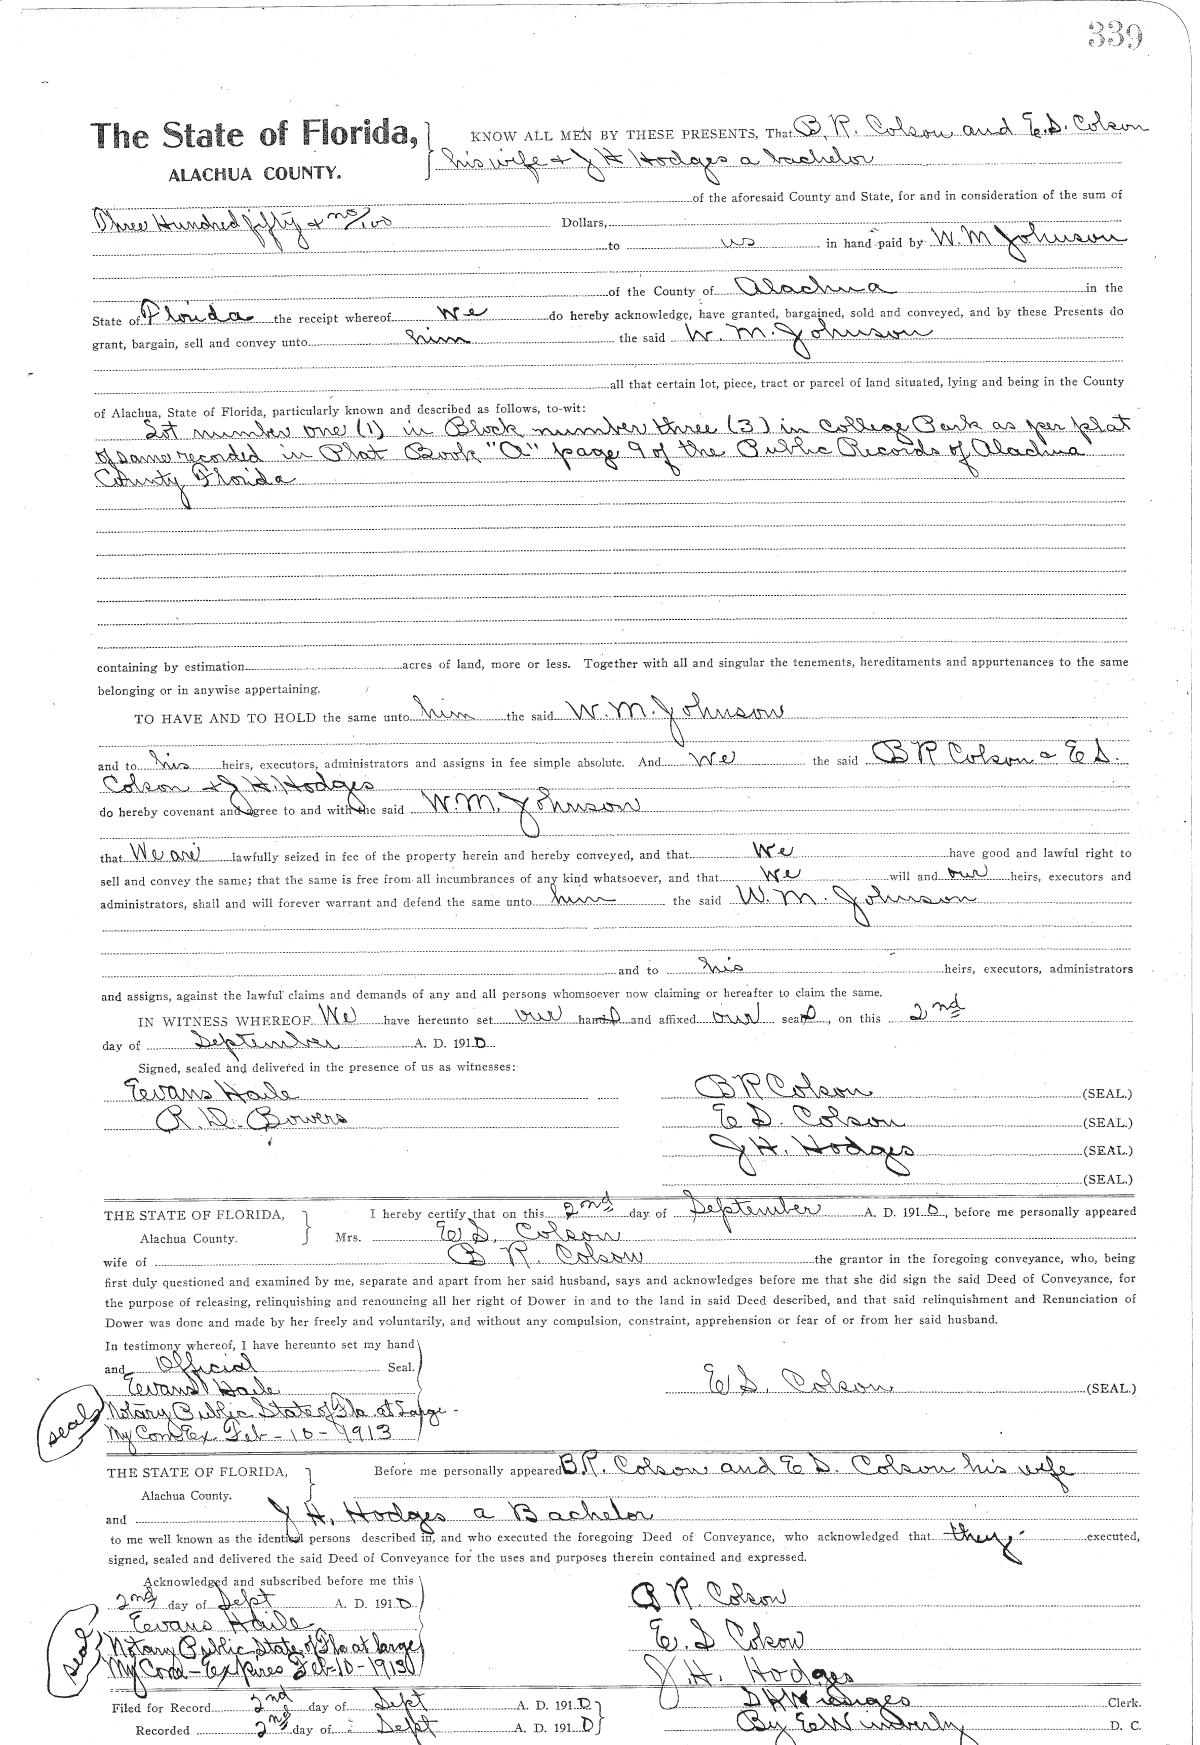 339
The State of Florida, KNOW ALL MEN BY THESE PRESENTS, That B. R. Colson and E. S. Colson
ALACHUA COUNTY. his wife & J H Hodges a bachelor
of the aforesaid County and State, for and in consideration of the sum of
Three Hundred fifty & no/100 Dollars,
to us in hand paid by W. M Johnson
of the County of Alachua in the
State of Florida the receipt whereof We do hereby acknowledge, have granted, bargained, sold and conveyed, and by these Presents do
grant, bargain, sell and convey unto him the said W. M. Johnson
all that certain lot, piece, tract or parcel of land situated, lying and being in the County
of Alachua, State of Florida, particularly known and described as follows, to-wit:
Lot number one (1) in Block number three (3) in College Park as per plat
of same recorded in Plat Book "A" page 9 of the Public Records of Alachua
County Florida
containing by estimation acres of land, more or less. Together with all and singular the tenements, hereditaments and appurtenances to the same
belonging or in anywise appertaining.
TO HAVE AND TO HOLD the same unto him the said W. M. Johnson
and to his heirs, executors, administrators and assigns in fee simple absolute. And We the said B R Colson & E S.
Colson & J H. Hodges
do hereby covenant and agree to and with the said W. M. Johnson
that We are lawfully seized in fee of the property herein and hereby conveyed, and that We have good and lawful right to
sell and convey the same; that the same is free from all incumbrances of any kind whatsoever, and that We will and our heirs, executors and
administrators, shall and will forever warrant and defend the same unto him the said W. M. Johnson
and to his heirs, executors, administrators
and assigns, against the lawful claims and demands of any and all persons whomsoever now claiming or hereafter to claim the same.
IN WITNESS WHEREOF We have hereunto set our hands and affixed our seals, on this 2nd
day of September A. D. 1910
Signed, sealed and delivered in the presence of us as witnesses:
Evans Haile B R Colson (SEAL.)
R. D. Bowers E S. Colson (SEAL.)
J H. Hodges (SEAL.)
(SEAL.)
THE STATE OF FLORIDA, I hereby certify that on this 2nd day of September A. D. 1910, before me personally appeared
Alachua County. Mrs. E S. Colson
wife of B R. Colson the grantor in the foregoing conveyance, who, being
first duly questioned and examined by me, separate and apart from her said husband, says and acknowledges before me that she did sign the said Deed of Conveyance, for
the purpose of releasing, relinquishing and renouncing all her right of Dower in and to the land in said Deed described, and that said relinquishment and Renunciation of
Dower was done and made by her freely and voluntarily, and without any compulsion, constraint, apprehension or fear of or from her said husband.
In testimony whereof, I have hereunto set my hand
and Official Seal.
Evans Haile E S. Colson (SEAL.)
seal Notary Public State of Fla at Large
My Com Ex Feb-10-1913
THE STATE OF FLORIDA, Before me personally appeared B. R. Colson and E S. Colson his wife
Alachua County.
and J H. Hodges a Bachelor
to me well known as the identical persons described in, and who executed the foregoing Deed of Conveyance, who acknowledged that they executed,
signed, sealed and delivered the said Deed of Conveyance for the uses and purposes therein contained and expressed.
Acknowledged and subscribed before me this
2nd day of Sept A. D. 1910 B R. Colson
Evans Haile
seal Notary Public State of Fla at large E. S Colson
My Com-Expires Feb-10-1913 J. H. Hodges
Filed for Record 2nd day of Sept A. D. 1910 Clerk.
Recorded 2nd day of Sept A. D. 1910 By E Wimberly D. C.